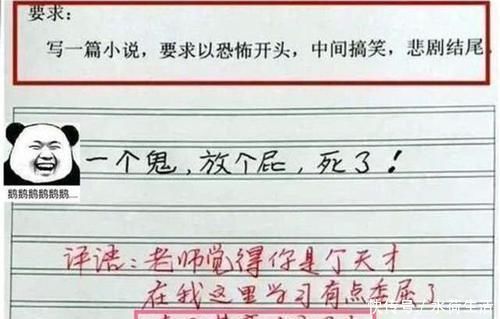 要求:
写一篇小说，要求以恐怖开头，中间搞笑，悲剧结尾
一个鬼，放个屁，死了！
鹅鹅鹅鹅鹅鹅....
评语：老师觉得你是个天才
在我这里学习有点委屈了